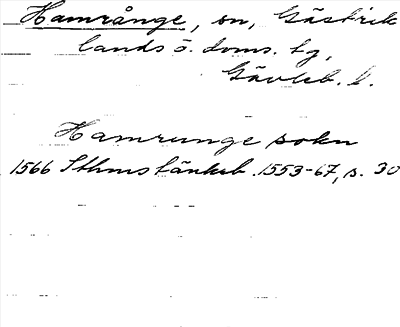 Hamrånge, sn, Gästrik
lands ö. doms. tg,
Gävleb. l.
Hamrunge sokn
1566 Sthms tänkeb. 1553-67, s. 30